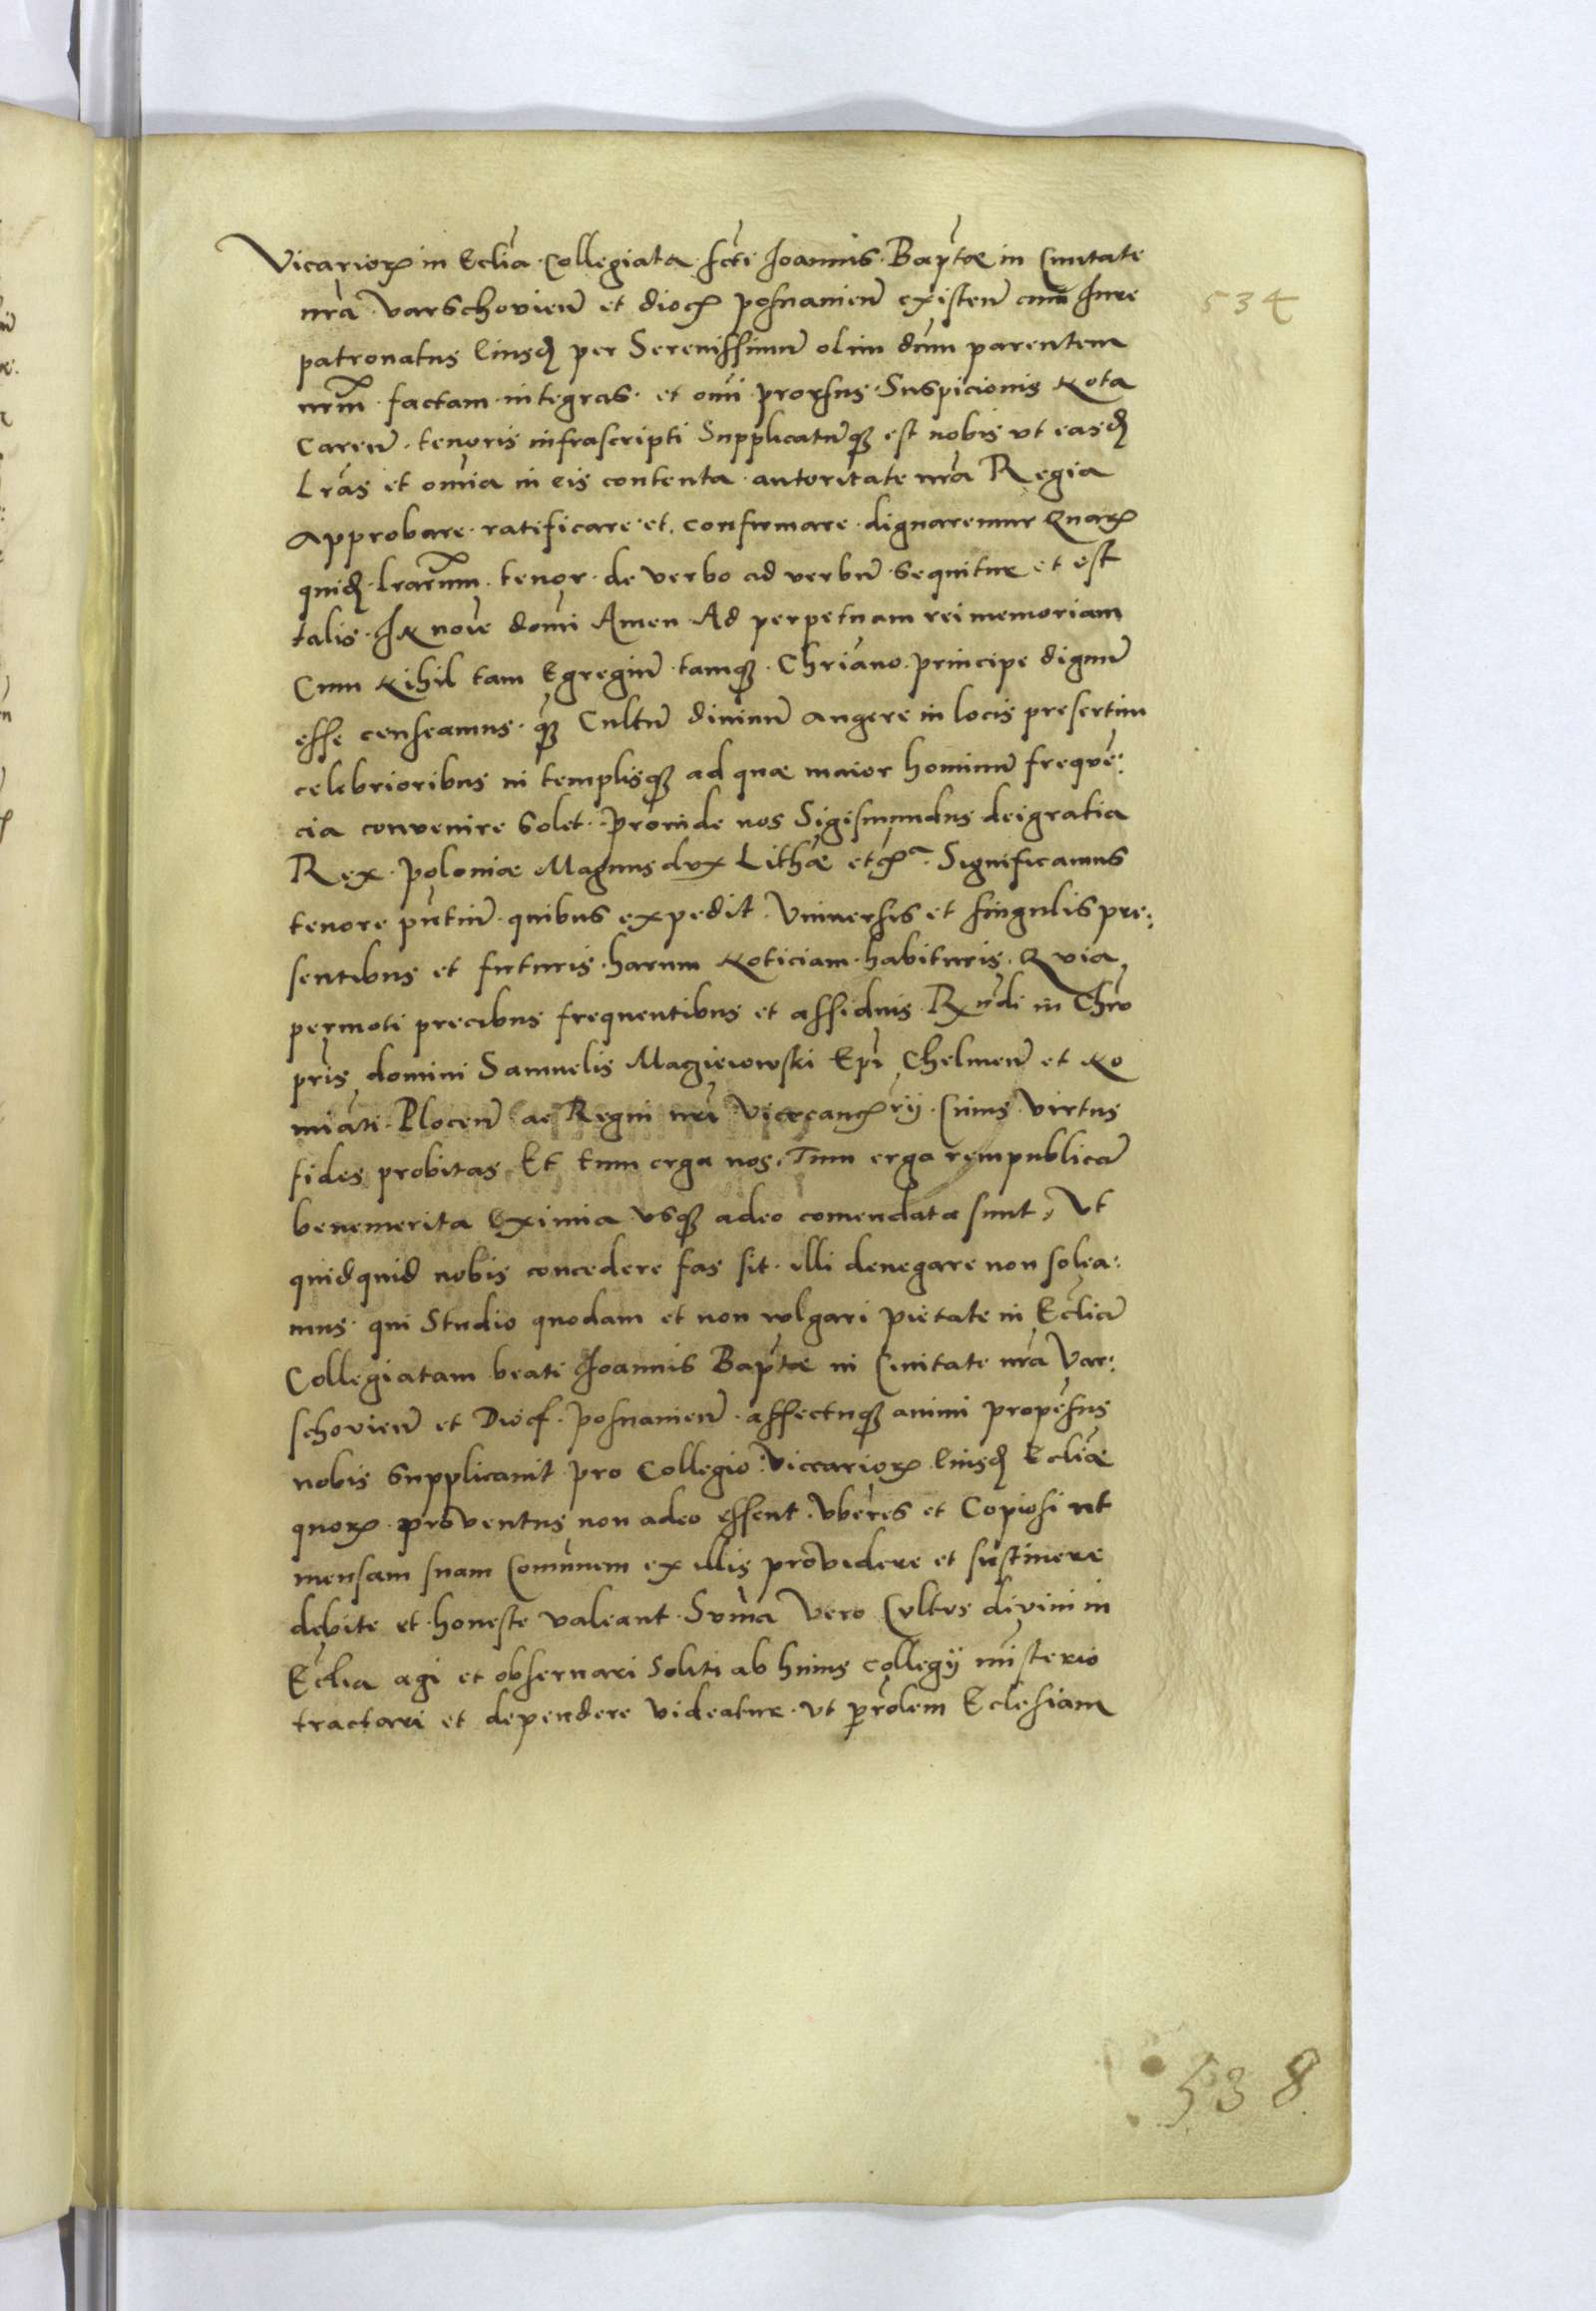 Vicarioꝝ in Ecĺia Collegiata sc̃ti Ioannis Bap̃tæ in Ciuitate
nr̃a Varschovień et diocꝭ posnanień existeń cum Iure
534
patronatus eiusđ per Serenissimū olim dñm parentem
nr̃m factam integras et om̃i prorsus Suspicionis Nota
Careñ tenoris infrascripti Supplicatūqꝫ est nobis vt easđ
Lr̃as et om̃ia in eis contenta autoritate nr̃a Regia
Approbare ratificare et confirmare dignaremur Quaꝝ
quiđ lr̃arum tenor de verbo ad verbū sequitur et est
talis In no͠ie domi͂ Amen Ad perpetuam rei memoriam
Cum Nihil tam Egregiū tamqꝫ Chri͠ano principe dignū
esse censeamus qꝫ Cultū diuinū augere in locis presertim
celebrioribus in templisqꝫ ad quæ maior hominū freque͂:
cia convenire solet. Proinde nos Sigismundus dei gratia
Rex Poloniæ Magnus dux Lith͠æ etcꝭª. Significamus
tenore pñtiū quibus expedit Vniuersis et singulis pre:
sentibus et futuris harum Noticiam habituris. Quia
permoti precibus frequentibus et assiduis Rñdi in Chr͠o
pr̃is domini Samuelis Maciejowski Ep͂i Chelmeñ et No
mi͠ati Ploceñ ac Regni nr̃i Vicecancꝭrij. Cuius virtus
fides probitas Et tum erga nos. Tum erga rempublicā
benemerita Eximia vsqꝫ adeo comendata sunt, Vt
quidquid nobis concedere fas sit illi denegare non solea:
mus. qui Studio quodam et non wlgari pietate in Ecĺiā
Collegiatam beati Ioannis Bap̃tæ in Ciuitate nr̃a Var:
schovień et Diocꝭ. Posnanień. affectuqꝫ animi prope͂sus
nobis supplicauit pro Collegio Viccarioꝝ eiusđ Ecĺiæ
quoꝝ proventus non adeo essent Vberes et Copiosi ut
mensam suam Com̃unem ex illis providere et sustinere
debite et honeste valeant. Sum̃a Vero Cultus divini in
Ecĺia agi et obseruari soliti ab huius collegij mi͂sterio
tractari et dependere videatur. vt p̱r͠olem Eclesiam
538